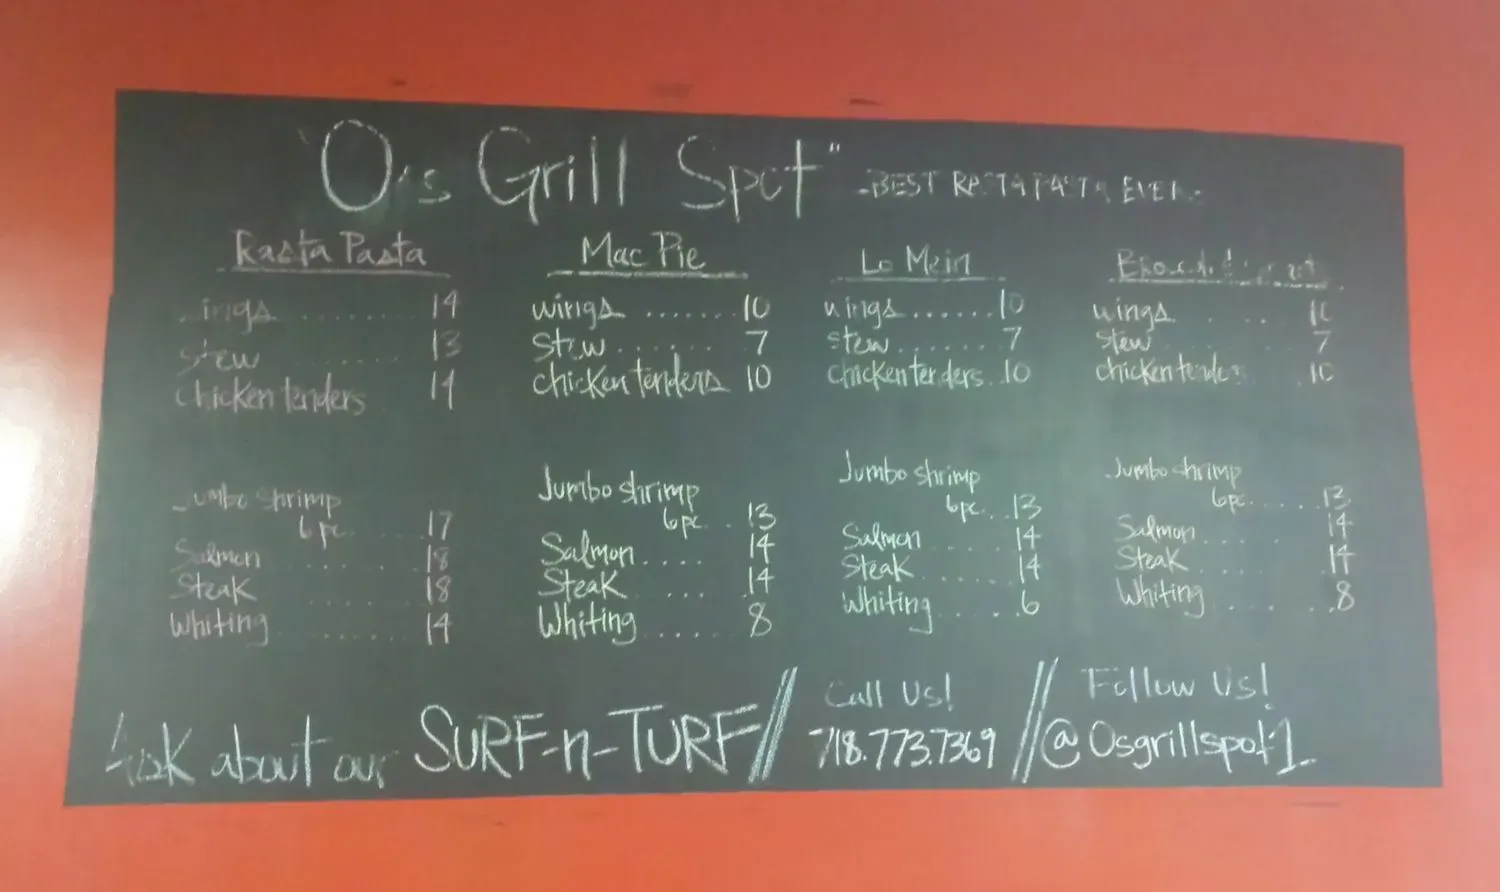 "O's Grill Spot" -BEST RASTA PASTA EVER-
Rasta Pasta
wings ........ 14
stew ........ 13
chicken tenders 14
Jumbo shrimp
6pc .... 17
Salmon ........ 18
Steak ...... 18
Whiting ........ 14
Mac Pie
wings ....... 10
stew ...... 7
chicken tenders 10
Jumbo shrimp
6pc. .. 13
Salmon .... 14
Steak ...... 14
Whiting ...... 8
Lo Mein
wings ...... 10
stew ....... 7
chicken tenders .. 10
Jumbo shrimp
6pc ... 13
Salmon ..... 14
Steak ...... 14
Whiting ..... 6
wings .... 10
stew ...... 7
chicken tenders .. 10
Jumbo shrimp
6pc ..... 13
Salmon ...... 14
Steak ...... 14
Whiting ..... 8
Ask about our SURF-n-TURF//
Call Us!
718.773.7369 //
Follow Us!
@Osgrillspot1